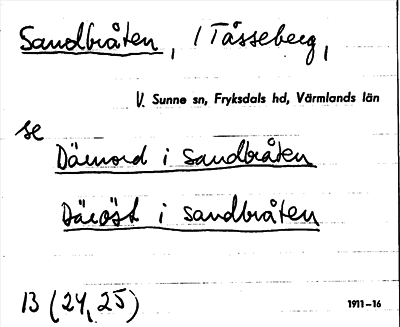 Sandbråten, i Tåsseberg,
V. Sunne sn, Fryksdals hd, Värmlands län
se
Därnord i Sandbråten
Däröst i sandbråten
13 (24, 25)
1911–16